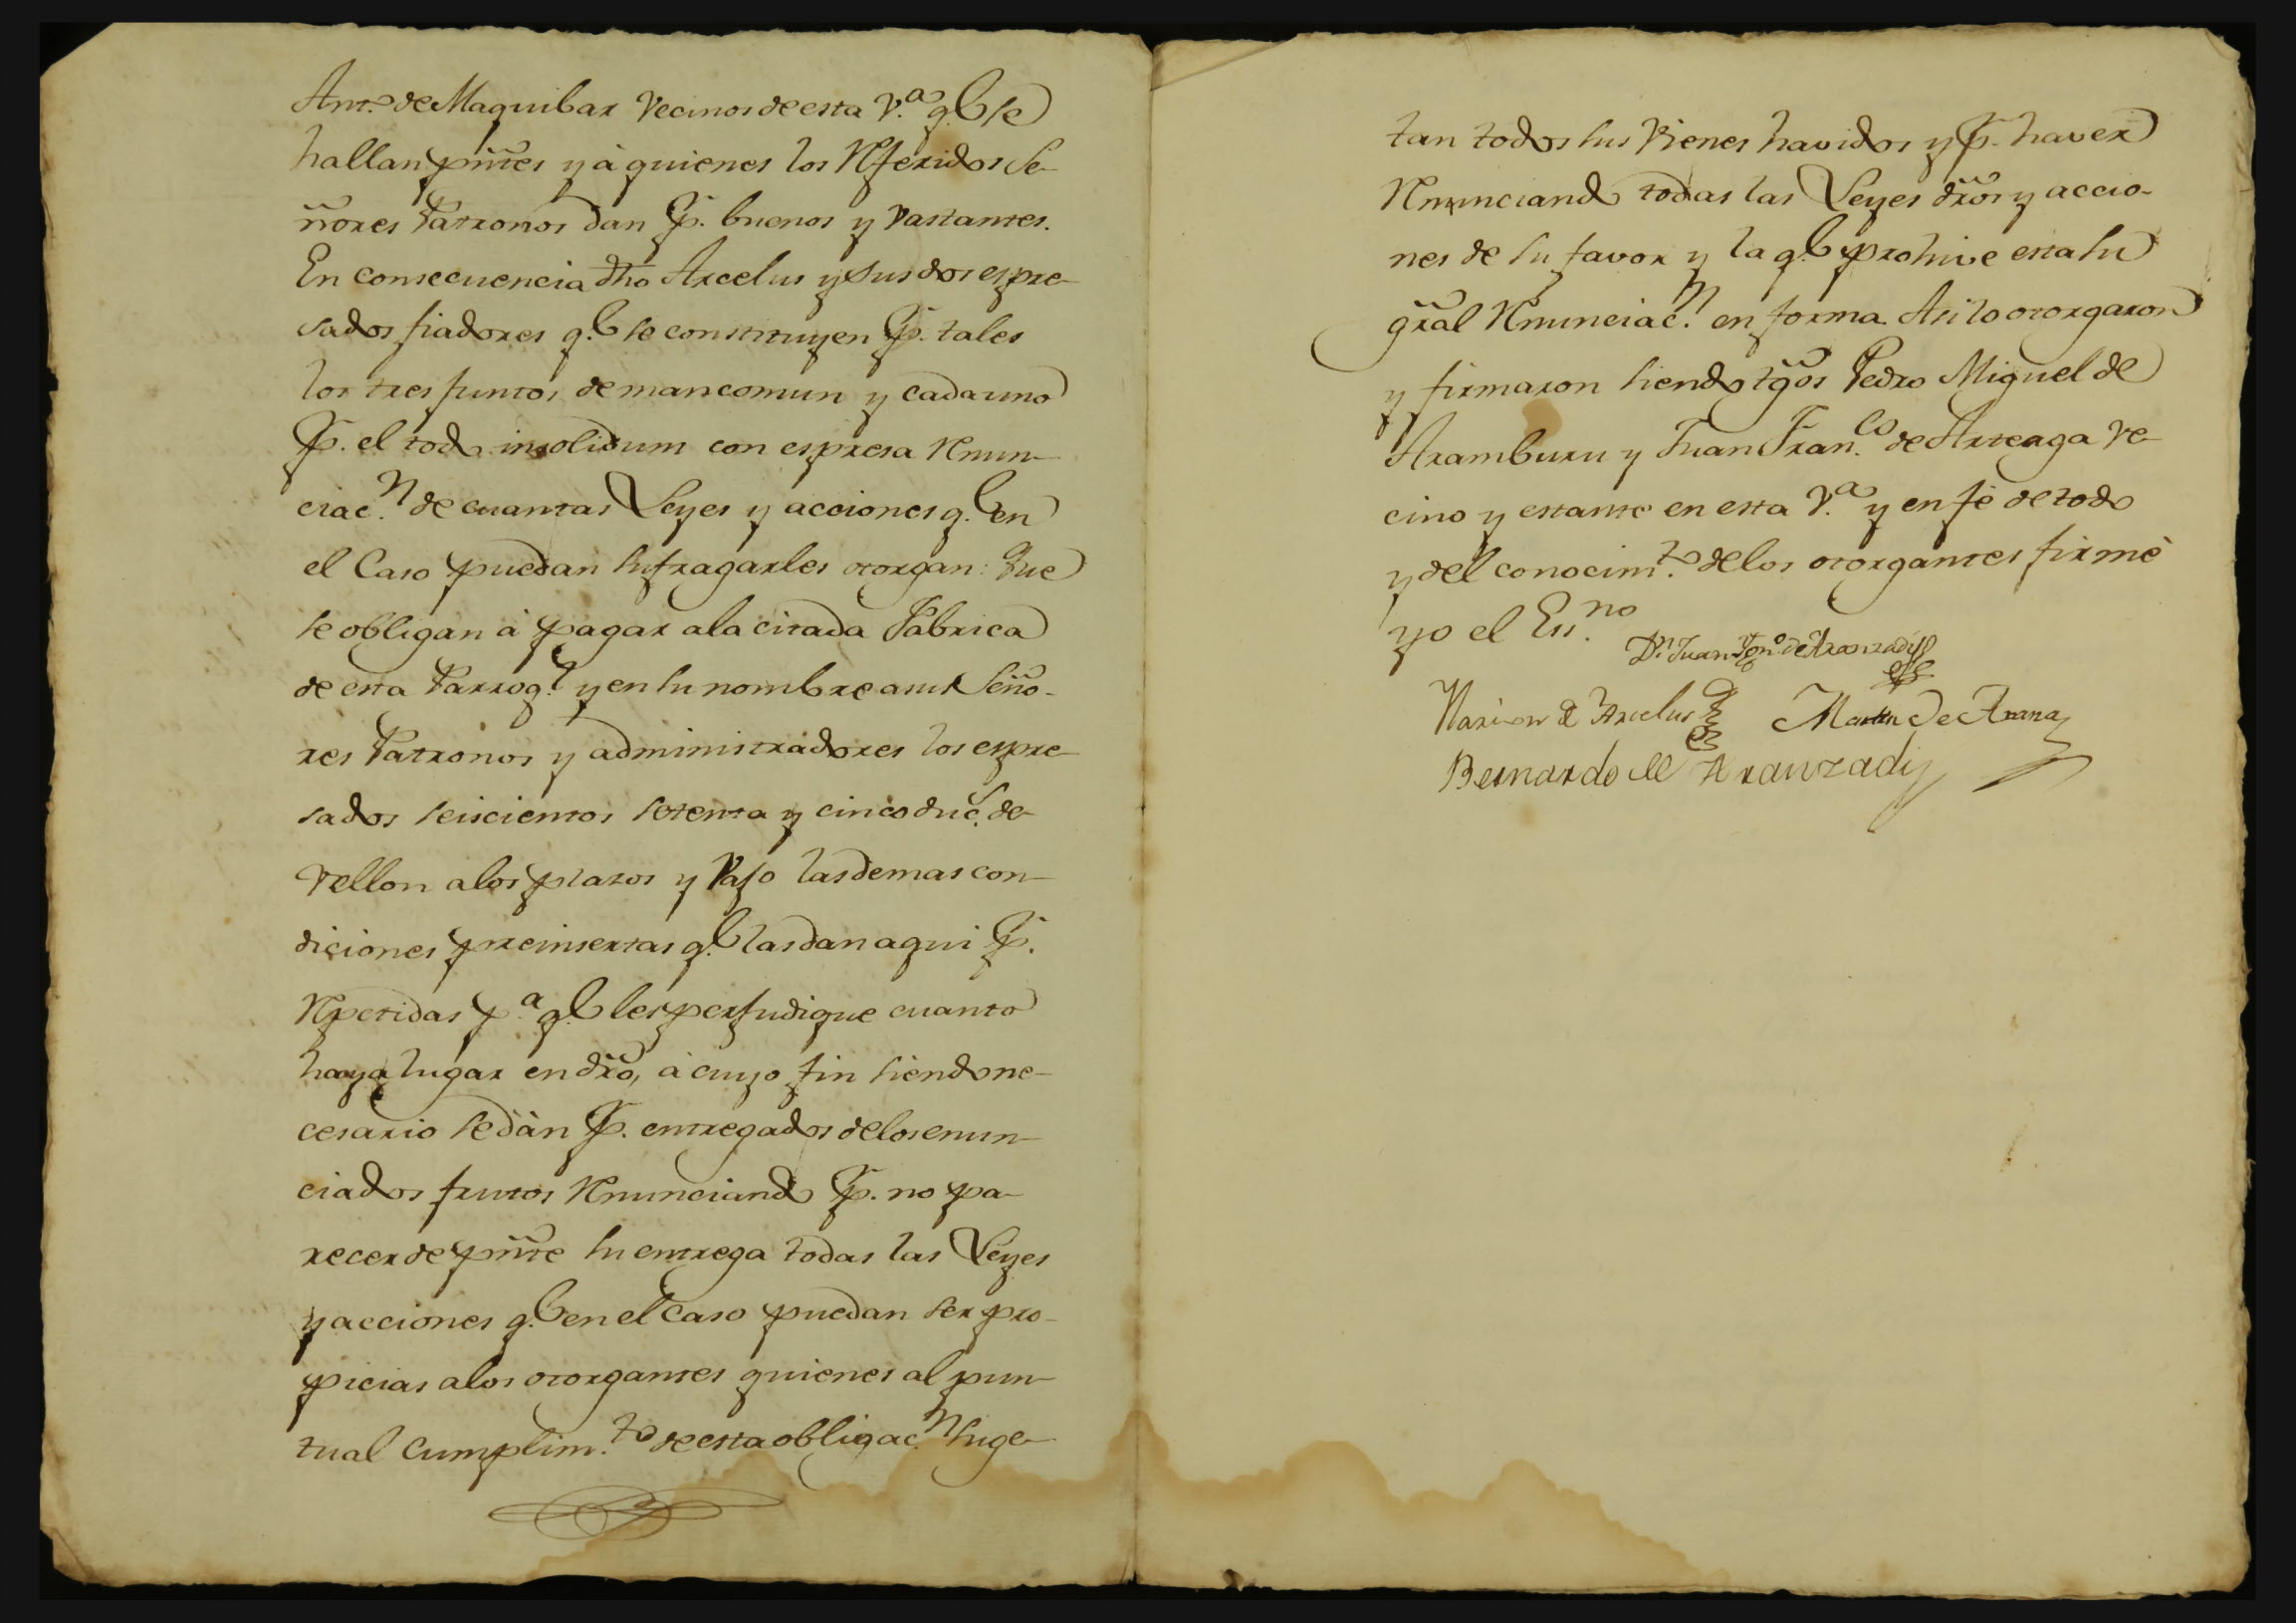 Ant.º de Maquibar Vecinos de esta V.ª q.e se
hallan pñtes y à quienes los Rferidos Se-
ñores Patronos dan p.r buenos y Vastantes.
En consecuencia dho Arcelus y sus dos espre-
sados fiadores q.e se constituyen p.r tales
los tres juntos de mancomun y cada uno
p.r el todo insolidum con espresa Rnun-
ciac.n de cuantas Leyes y acciones q.e en
el Caso puedan sufragarles otorgan: Que
se obligan à pagar ala citada Fabrica
de esta Parroq.l y en su nombre a sus Seño-
res Patronos y administradores los espre-
sados seiscientos setenta y cinco duc.s de
Vellon alos plazos y Vajo las demas con-
diciones preinsertas q.e las dan aqui p.r
Rpetidas p.ª q.e les perjudique cuanto
haya lugar en dr̃o, à cuyo fin siendo ne-
cesario se dàn p.r entregados de los enun-
ciados frutos Rnunciando p.r no pa-
recer de pñte su entrega todas las Leyes
y acciones q.e en el Caso puedan ser pro-
picias alos otorgantes quienes al pun-
tual Cumplim.to de esta obligac.n suge-
tan todos sus Vienes havidos y p.r haver
Rnunciando todas las Leyes dr̃os y accio-
nes de su favor y la q.e prohive esta su
gr̃al Rnunciac.n en forma. Asi lo otorgaron
y firmaron siendo tg̃os Pedro Miguel de
Aramburu y Juan Fran.co de Arteaga ve-
cino y estante en esta V.ª y en fè de todo
y del conocim.to delos otorgantes firmè
yo el Ess.no
D.n Juan Ign.º de Aranzadi
de Arcelus Martin de Arana
Bernardo de Aranzadi